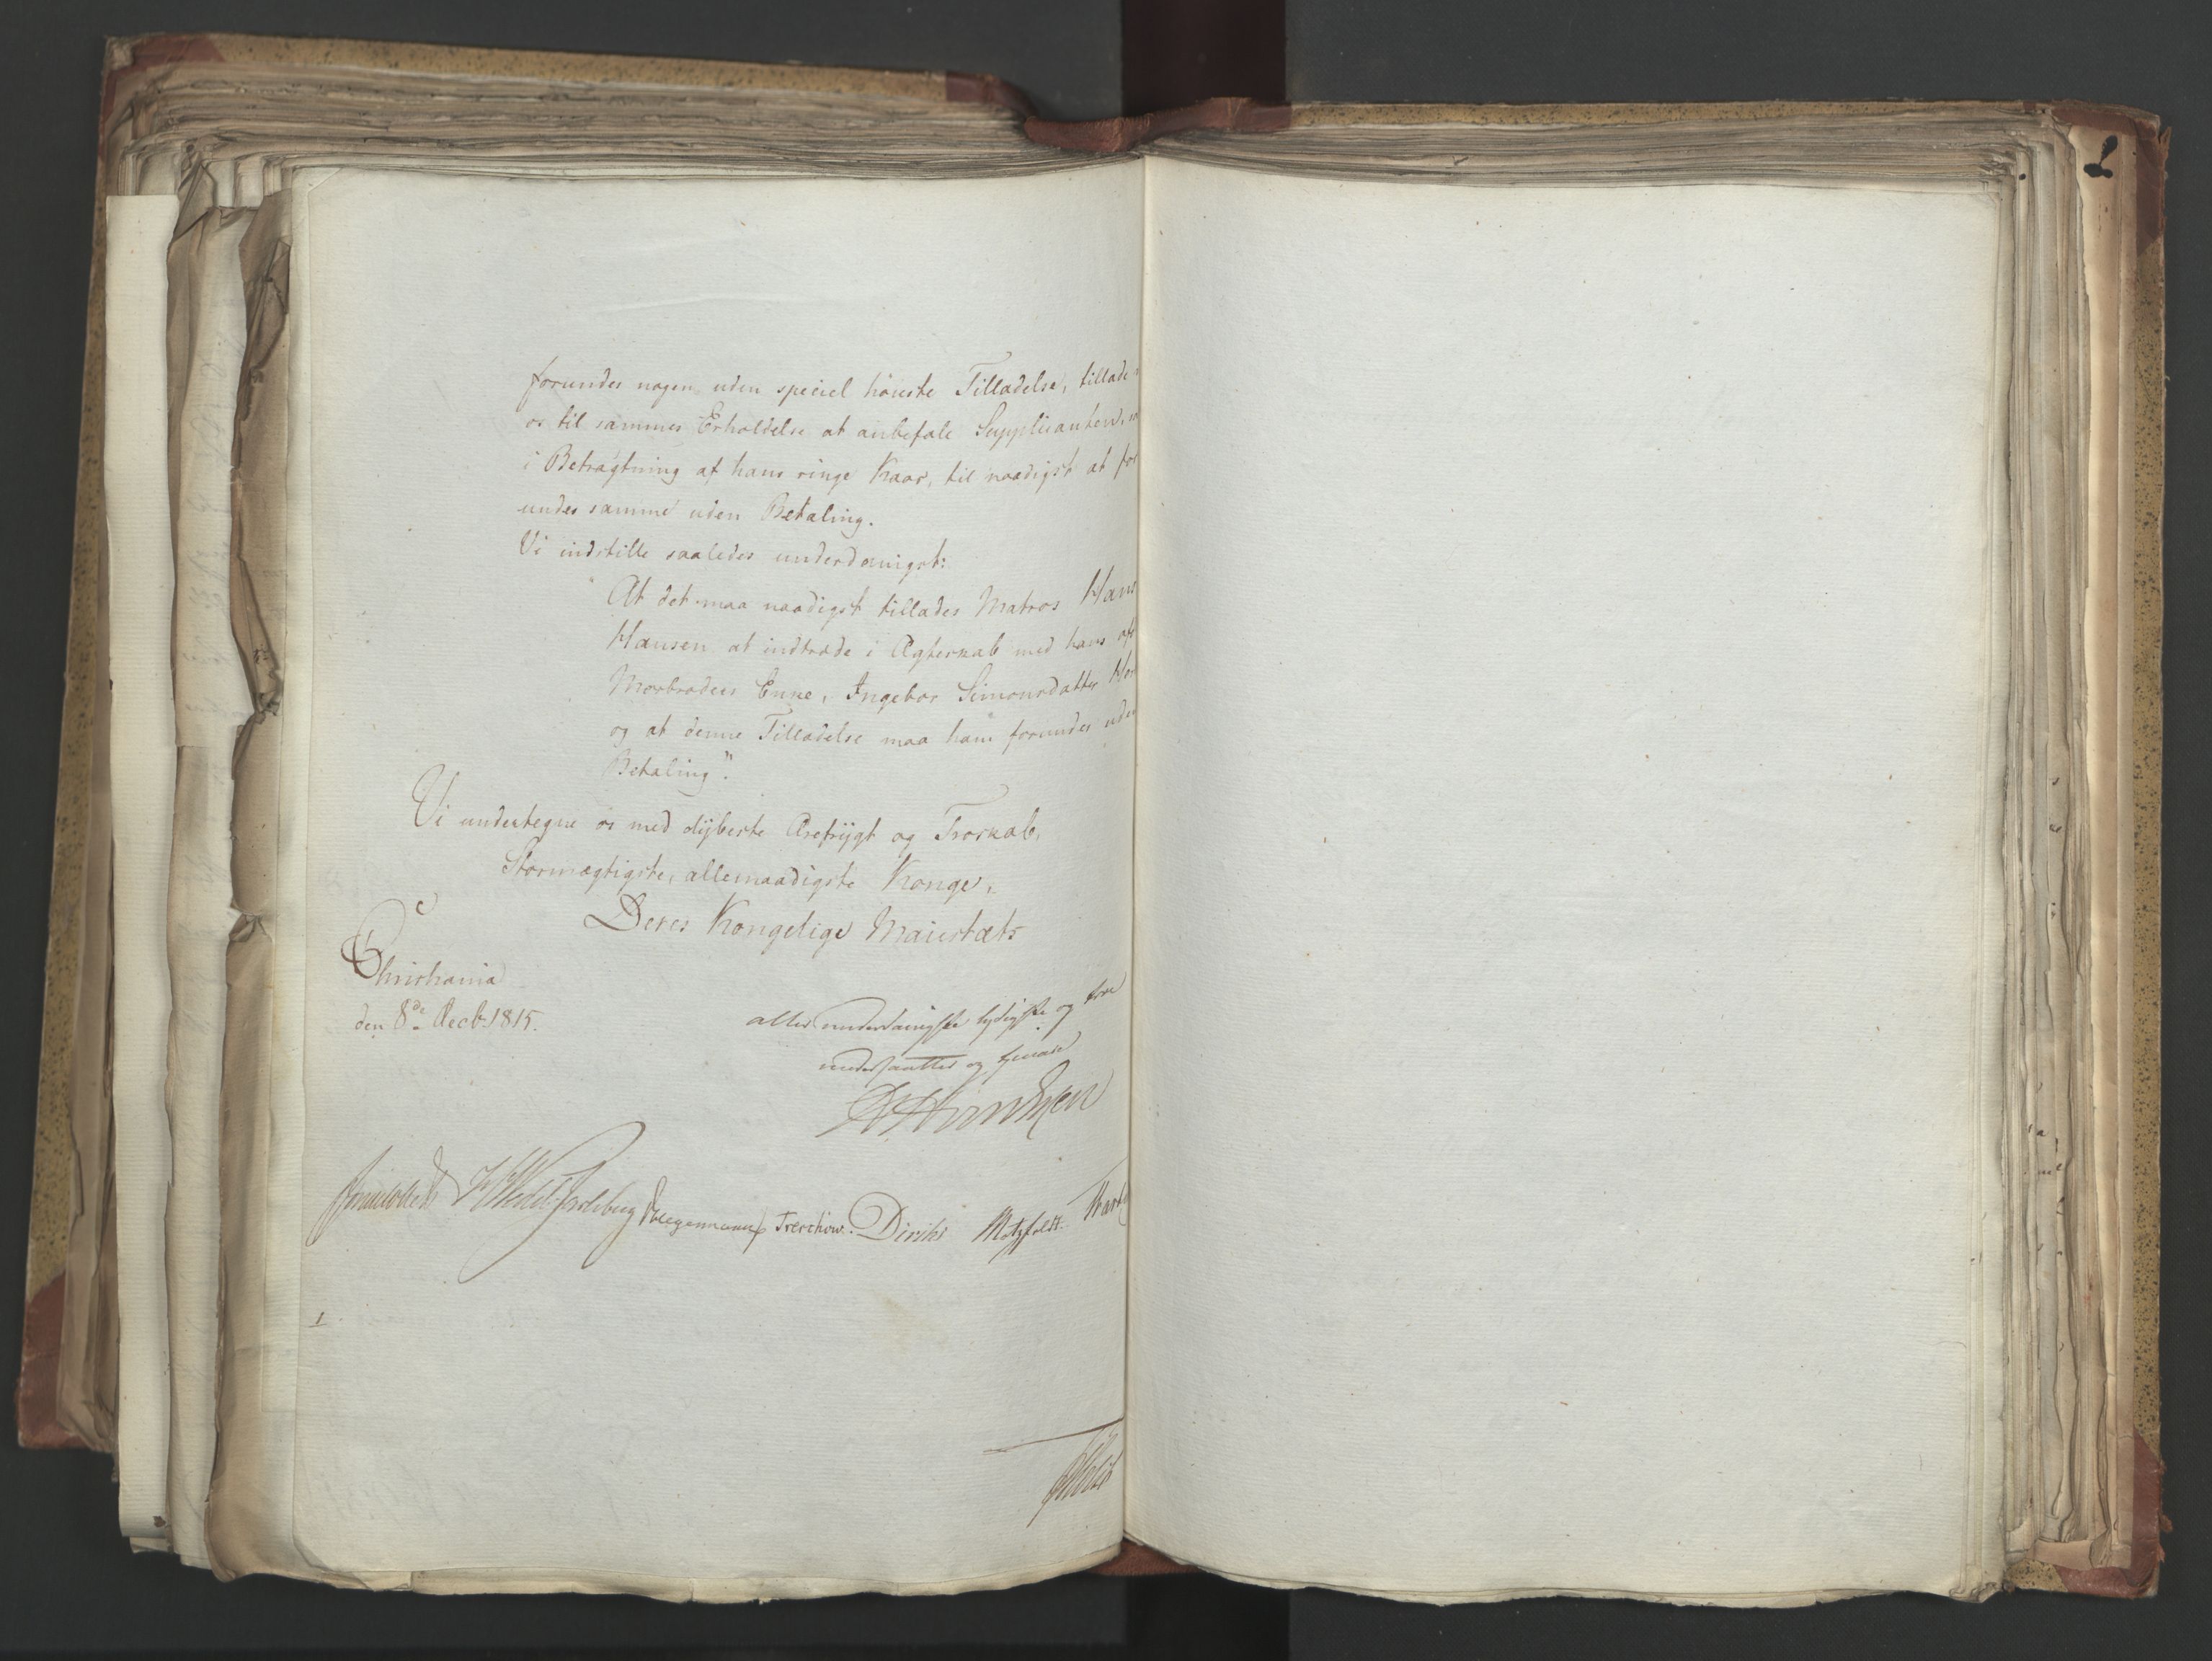 forundes nogen uden speciel höieste Tilladelse, tillade
os til sammes Erholdelse at anbefale Supplicanten, so
i Betragtning af hans ringe Kaar, til naadigst at for
undes samme uden Betaling.
Vi indstille saaledes underdanigst:
At det maa naadigst tillades Matros Hans
Hansen at indtræde i Ægteskab med hans afd
Morbroders Enke, Ingebor Simonsdatter
og at denne Tilladelse maa ham forundes uden
Betaling".
Vi undertegne os med dÿbeste Ærefrÿgt og Troskab,
Stormægtigste, allernaadigste Konge,
Deres Kongelige Maiestæts
Christiania
den 8de Decbr 1815.
allerunderdanigste lydigste og troe
undersaatter og tjenere
Sommerhielm HWedelJarlsberg Hegermann Treschow. Diriks Motzfeldt.
1
Holst